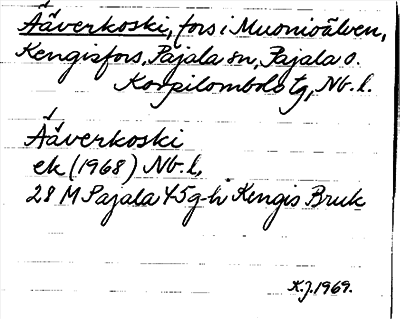 Ääverkoski, fors i Muonioälven,
Kengisfors, Pajala sn, Pajala o.
Korpilombolo tg, Nb. l.
Ääverkoski
ek (1968) Nb. l.
28 M Pajala 45g-h Kengis Bruk
K.J. 1969.